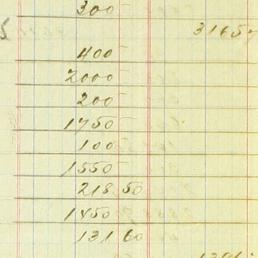 300
400
2000
200
1750
100
1550
218 50
1450
131 60